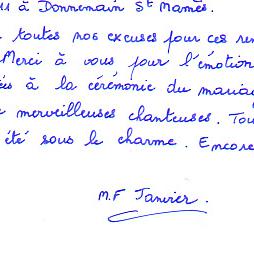 à Donnemain St Mamès.
toutes nos excuses pour ces
Merci à vous pour l'émotion
à la cérémonie du
merveilleuses chanteuses.
été sous le charme. Encore
M.F Janvier.